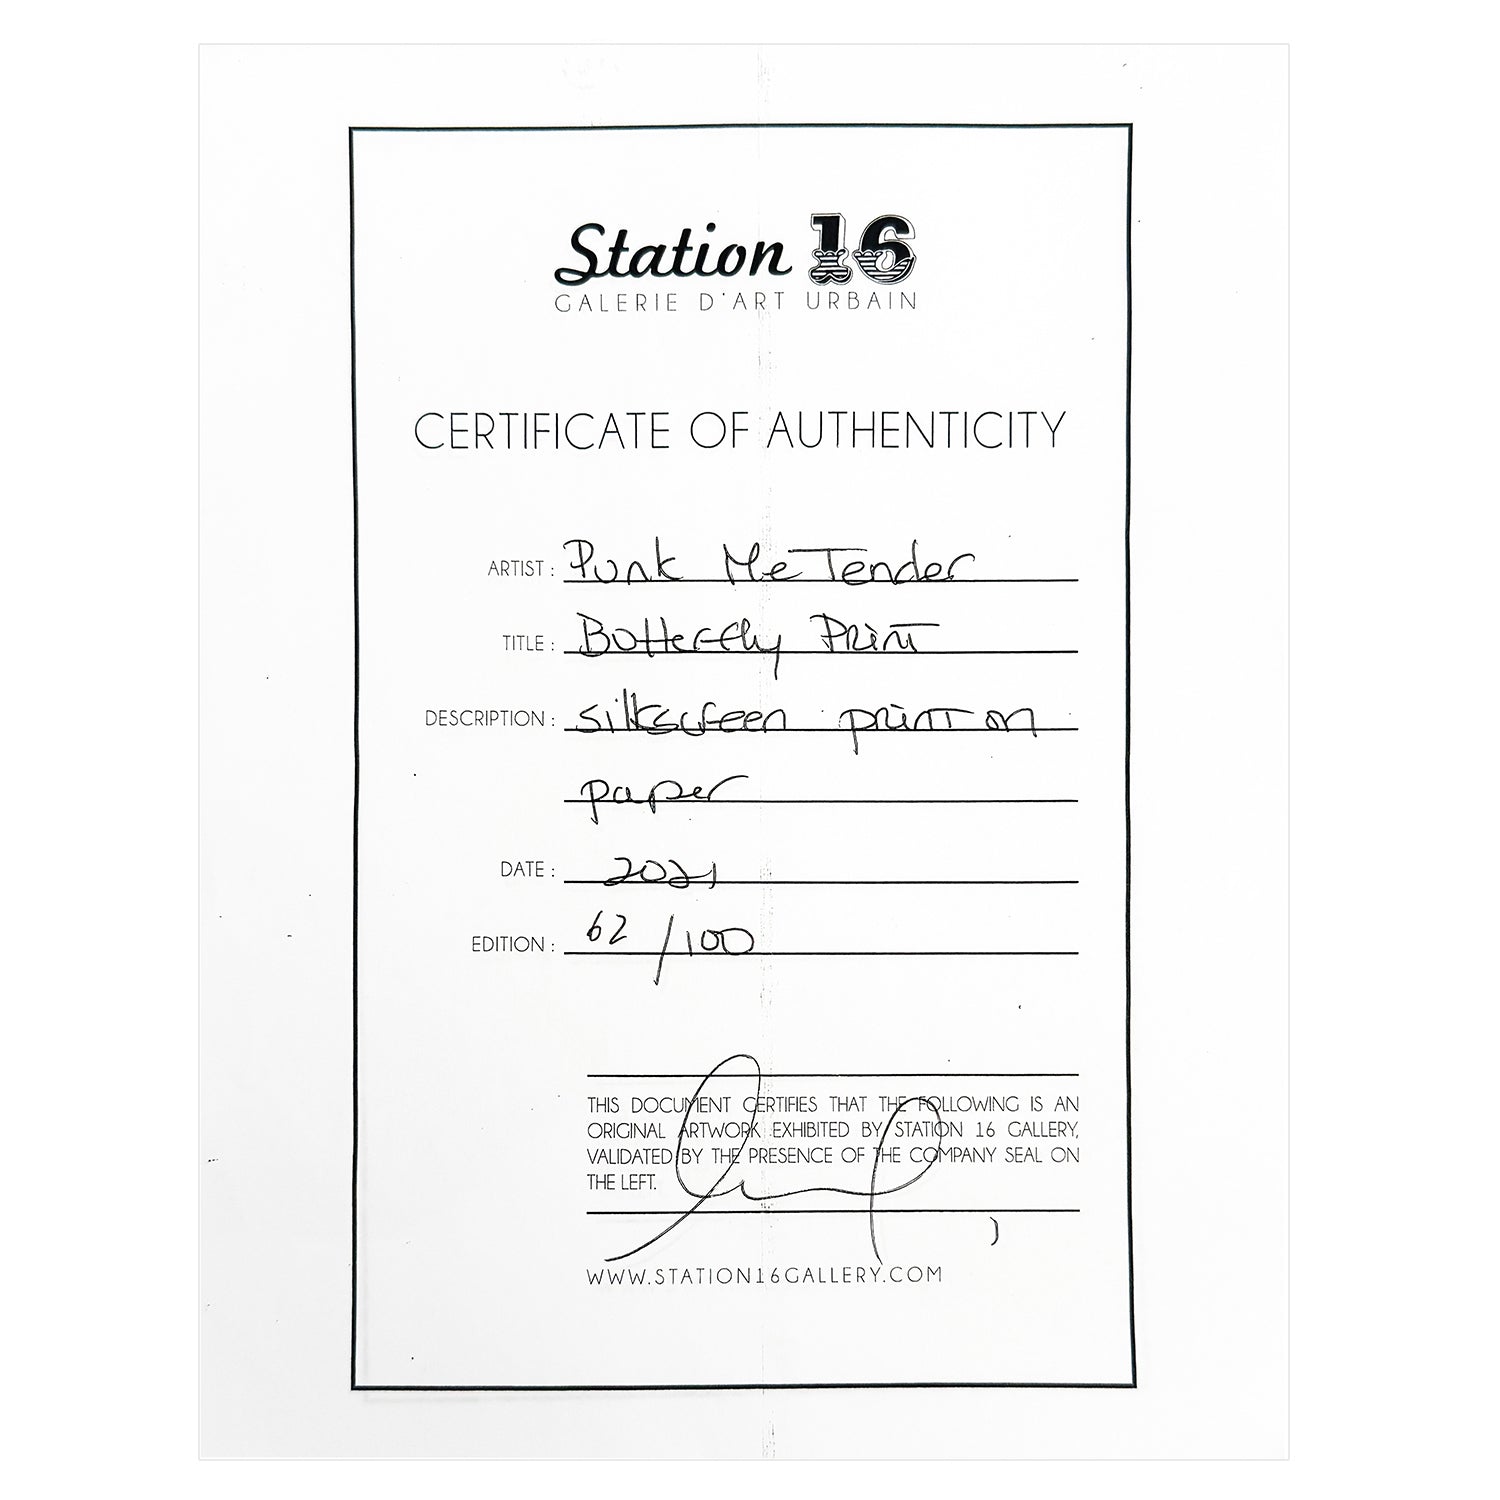 Station 16
GALERIE D'ART URBAIN
CERTIFICATE OF AUTHENTICITY
ARTIST : Punk Me Tender
TITLE : Butterfly Print
DESCRIPTION : silkscreen print on
paper
DATE : 2021
EDITION : 62/100
THIS DOCUMENT CERTIFIES THAT THE FOLLOWING IS AN
ORIGINAL ARTWORK EXHIBITED BY STATION 16 GALLERY,
VALIDATED BY THE PRESENCE OF THE COMPANY SEAL ON
THE LEFT.
WWW.STATION16GALLERY.COM